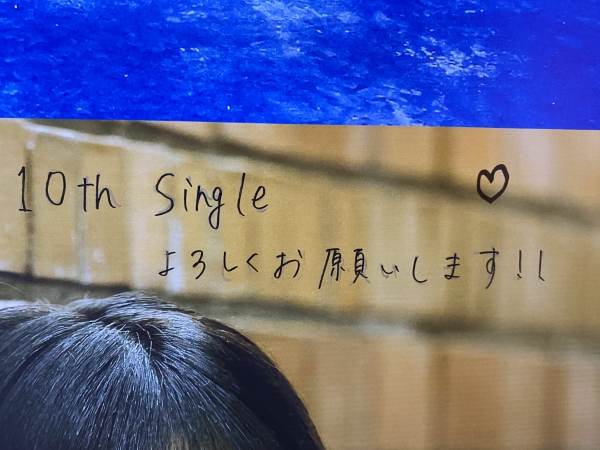 10th Single ♡
よろしくお願いします!!